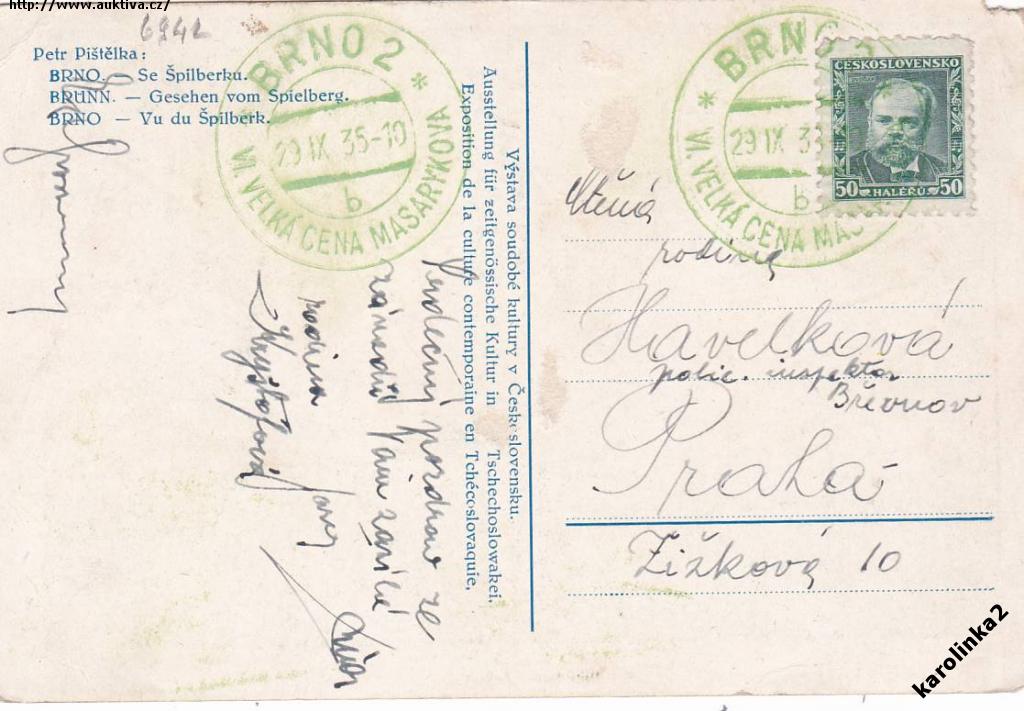 http://www.auktiva.cz/
6942
Petr Pištělka:
BRNO. — Se Špilberku.
BRÜNN. — Gesehen vom Spielberg.
BRNO — Vu du Špilberk.
BRNO 2
29 IX 35-10
b
VI. VELKÁ CENA MASARYKOVA
Výstava soudobé kultury v Československu.
Ausstellung für zeitgenössische Kultur in Tschechoslowakei.
Exposition de la culture contemporaine en Tchécoslovaquie.
Srdečný pozdrav ze
Vám zasílá
rodina
BRNO 2
29 IX 35
b
VI. VELKÁ CENA MAS
ČESKOSLOVENSKO
50 HALÉŘŮ 50
Ctěná
rodina
Havelková
polic. inspektor
Břevnov
Praha
Žižková 10
karolinka2